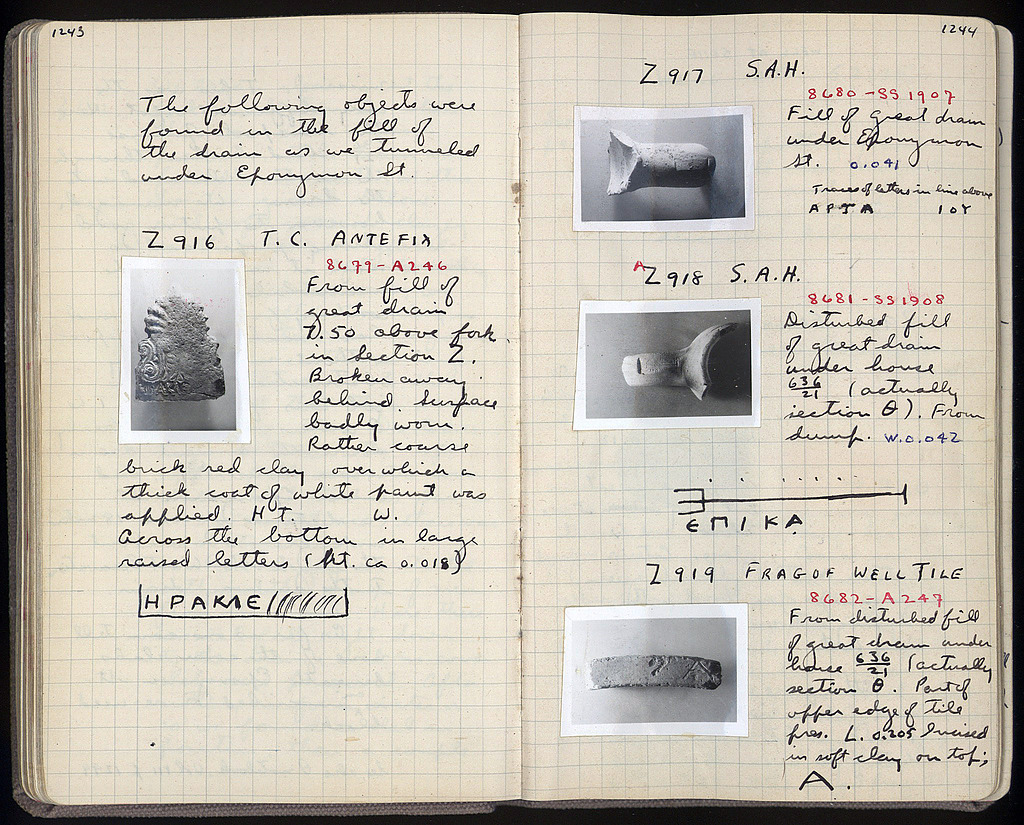 1243
The following objects were
found in the fill of
the drain as we tunneled
under Eponymon St.
Z 916 T. C. ANTEFIX
8679 - A 246
From fill of
great drain
7.50 above fork
in section Z.
Broken away
behind surface
badly worn.
Rather coarse
brick red clay over which a
thick coat of white paint was
applied. HT. W.
Across the bottom in large
raised letters (ht. ca 0.018)
ΗΡΑΚΛΕ
1244
Z 917 S.A.H.
8680 - SS 1907
Fill of great drain
under Eponymon
St. 0.041
Traces of letters in line above
Z 918 S.A.H.
A
8681 - SS 1908
Disturbed fill
of great drain
under house
636/21 (actually
section Θ). From
dump. W. 0.042
ЄΠΙΚΑ
Z 919 FRAG OF WELL TILE
8682 - A 247
From disturbed fill
of great drain under
house 636/21 (actually
section Θ. Part of
upper edge of tile
pres. L. 0.205 Incised
in soft clay on top;
A.